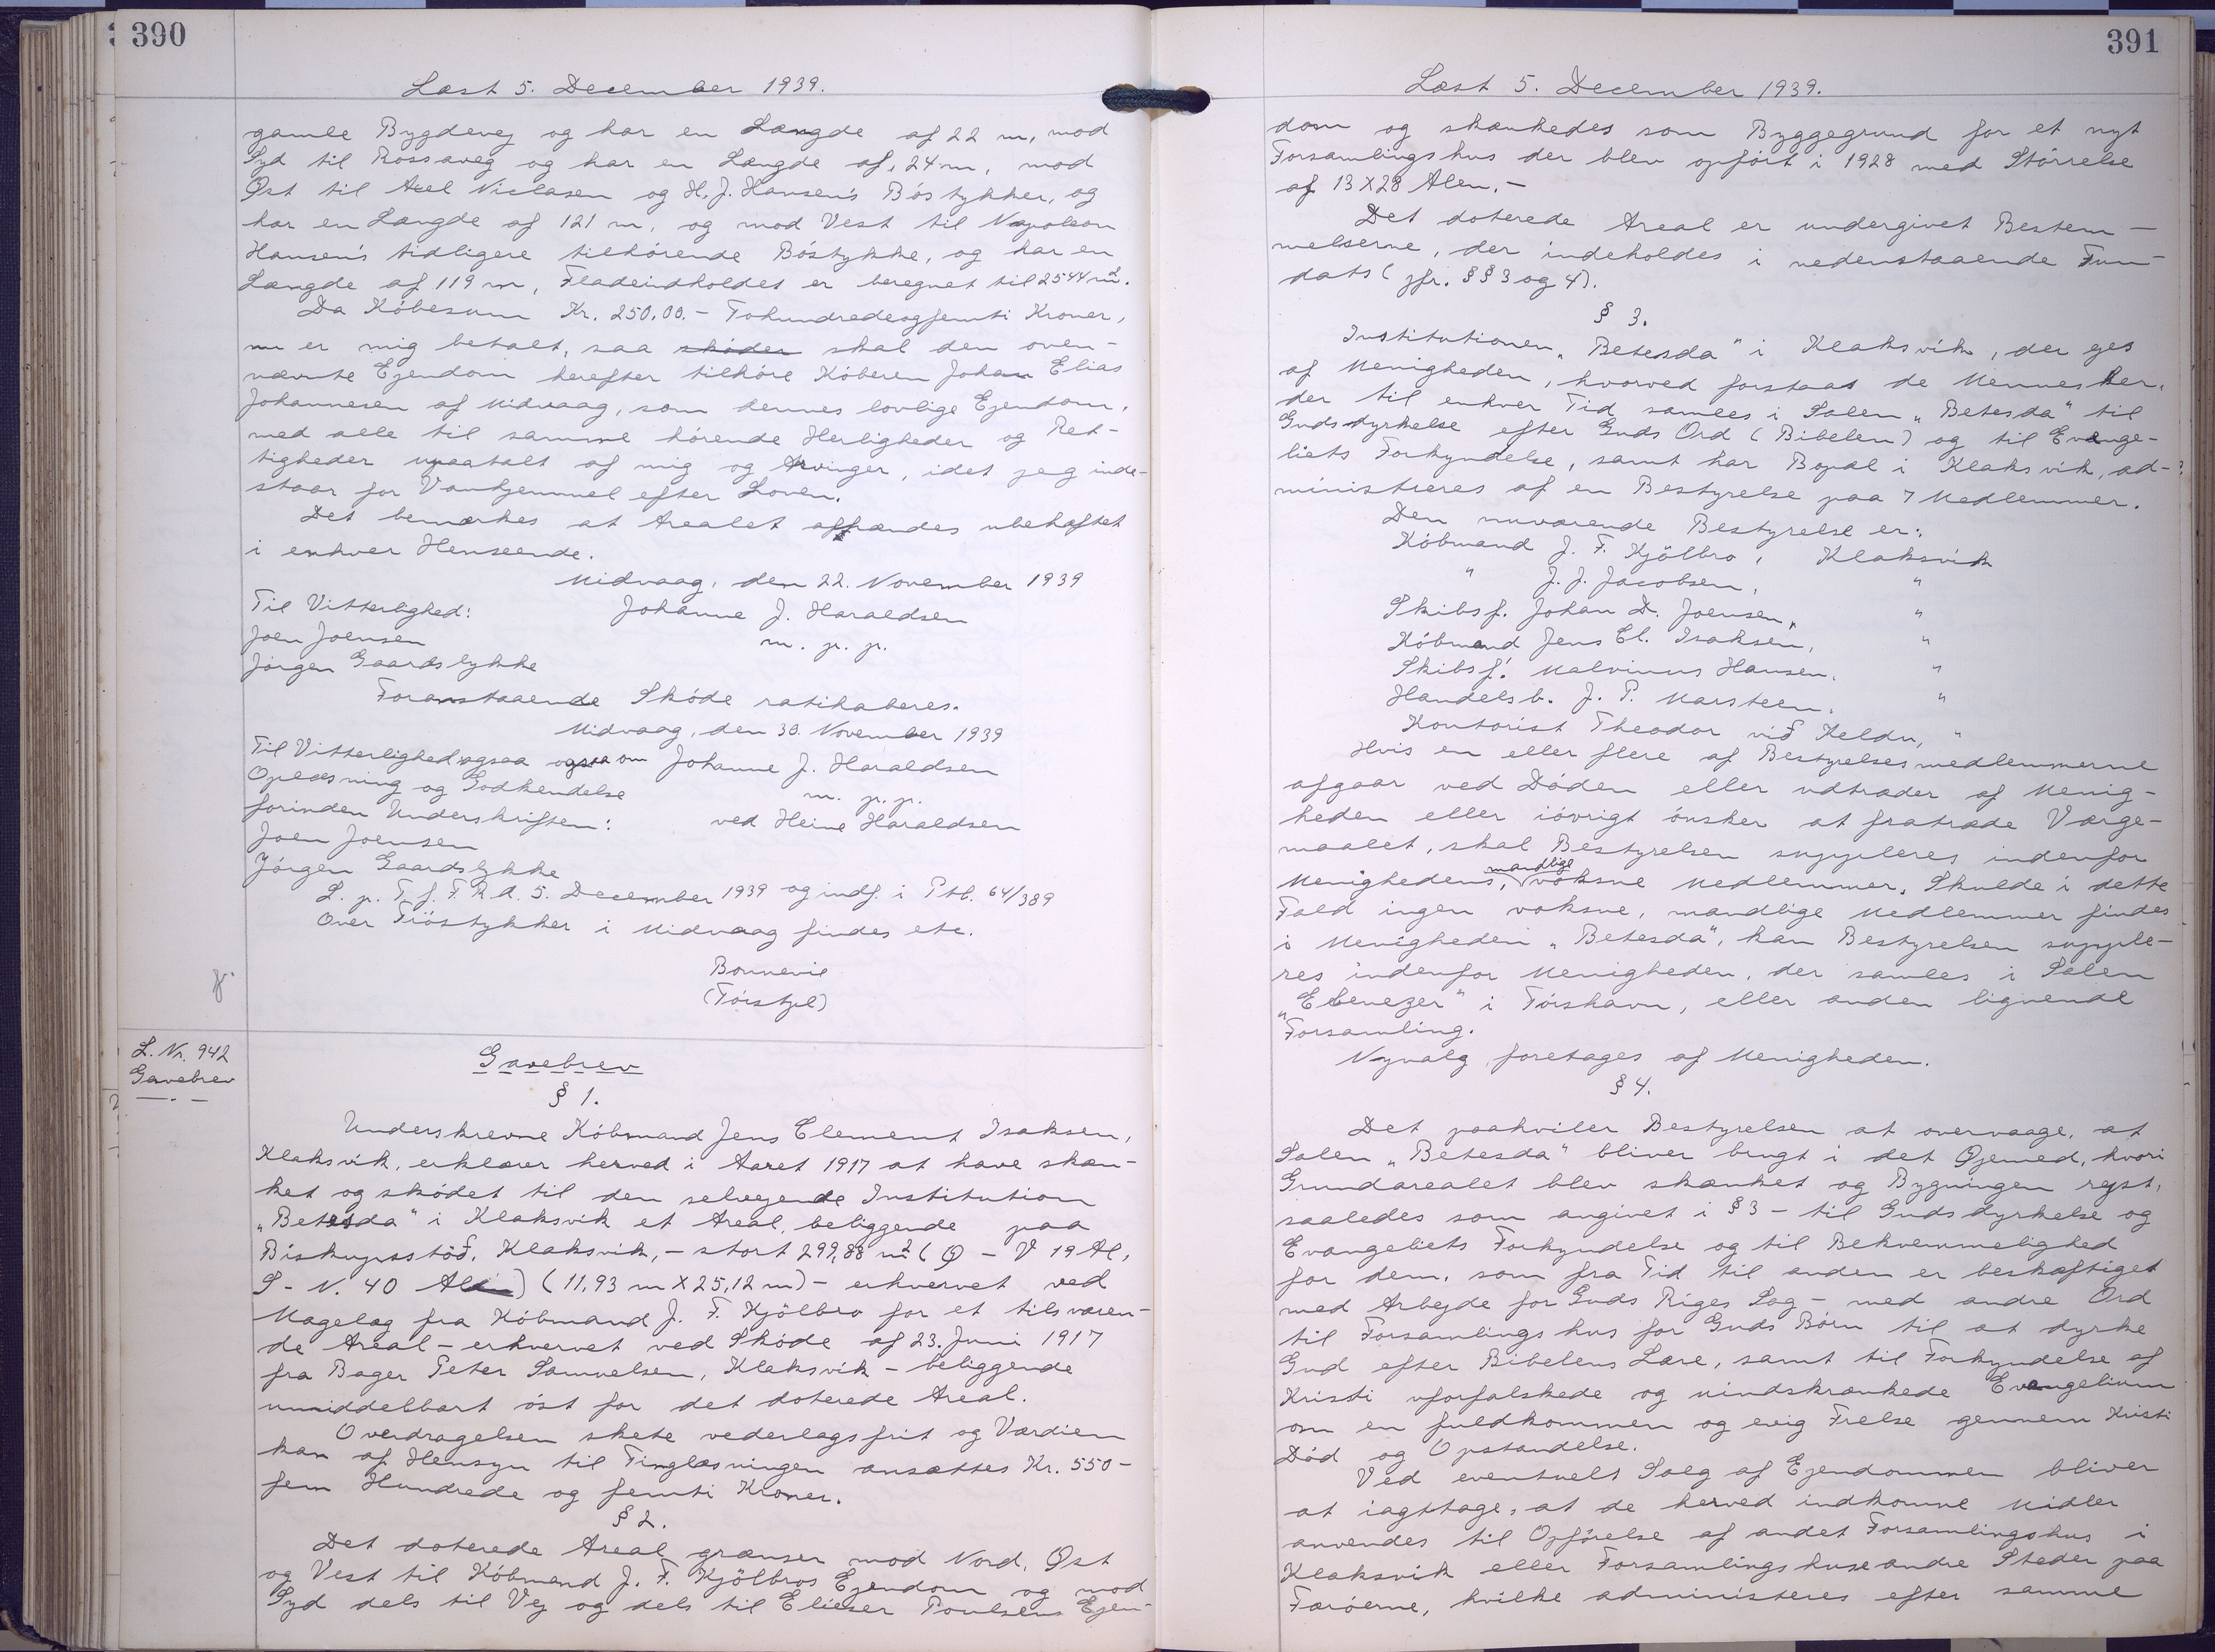 390
Læst 5. December 1939.
gamle Bygdevej og har en Længde af 22 m, mod
Syd til Rossaveg og har en Længde af, 24 m, mod
Øst til Axel Niclasen og H. J. Hansen's Bóstykker, og
har en Længde af 121 m, og mod Vest til Napoleon
Hansen's tidligere tilhörende Bóstykke, og har en
Længde af 119 m, Fladeindholdet er beregnet til 2544 m².
Da Köbesum Kr. 250,00.- Tohundredeogfemti Kroner,
nu er mig betalt, saa sköder skal den oven-
nævnte Ejendom herefter tilhöre Köberen Johan Elias
Johannesen af Midvaag, som dennes lovlige Ejendom,
med alle til samme hörende Herligheder og Ret-
tigheder upaatalt af mig og Arvinger, idet jeg inde-
staar for Vanhjemmel efter Loven.
Det bemærkes at Arealet afhændes ubehæftet
i enhver Henseende.
Midvaag, den 22. November 1939
Til Vitterlighed: Johanne J. Haraldsen
Joen Joensen m. p. p.
Jörgen Gaardslykke
Foranstaaende Sköde ratihaberes.
Midvaag, den 30. November 1939
Til Vitterlighed ogsaa ogsaa om Johanne J. Haraldsen
Oplæsning og Godkendelse m. p. p.
forinden Underskriften: ved Heine Haraldsen
Joen Joensen
Jörgen Gaardslykke
L. p. T. f. F. R. d. 5. December 1939 og indf. i Ptb. 64/389
Over Tröstykker i Midvaag findes etc.
Bonnevie
(Tórstjel)
L. Nr. 942
Gavebrev
Gavebrev
§ 1.
Underskrevne Köbmand Jens Clement Isaksen,
Klaksvik, erklærer herved i Aaret 1917 at have skæn-
ket og sködet til den selvejende Institution
„Betesda" i Klaksvik et Areal, beliggende paa
Biskupsstöð, Klaksvik, - stort 299,88 m² (Ø - V 19 Al,
S - N. 40 Alen) (11,93 m X 25,12 m) - erhvervet ved
Magelag fra Köbmand J. F. Kjölbro for et tilsvaren-
de Areal - erhvervet ved Sköde af 23. Juni 1917
fra Bager Peter Samuelsen, Klaksvik - beliggende
umiddelbart öst for det doterede Areal.
Overdragelsen skete vederlagsfrit og Værdien
kan af Hensyn til Tinglæsningen ansættes Kr. 550-
fem Hundrede og femti Kroner.
§ 2.
Det doterede Areal grænser mod Nord, Øst
og Vest til Köbmand J. F. Kjölbros Ejendom og mod
Syd dels til Vej og dels til Elieser Poulsens Ejen-
391
Læst 5. December 1939.
dom og skænkedes som Byggegrund for et nyt
Forsamlingshus der blev opfört i 1928 med Störrelse
af 13 X 28 Alen. -
Det doterede Areal er undergivet Bestem -
melserne, der indeholdes i nedenstaaende Fun-
dats ( jfr. §§ 3 og 4).
§ 3.
Institutionen „Betesda" i Klaksvik, der ejes
af Menigheden, hvorved forstaas de Mennesker,
der til enhver Tid samles i Salen „Betesda" til
Gudsdyrkelse efter Guds Ord (Bibelen) og til Evange-
liets Forkyndelse, samt har Bopæl i Klaksvik, ad-
ministreres af en Bestyrelse paa 7 Medlemmer.
Den nuværende Bestyrelse er:
Köbmand J. F. Kjölbro, Klaksvik
" J. J. Jacobsen, "
Skibsf. Johan D. Joensen, "
Köbmand Jens Cl. Isaksen, "
Skibsf. Malvinus Hansen, "
Handelsb. J. P. Marsteen, "
Kontorist Theodor við Keldu, "
Hvis en eller flere af Bestyrelsesmedlemmerne
afgaar ved Döden eller udtræder af Menig-
heden eller iövrigt önsker at fratræde Værge-
maalet, skal Bestyrelsen suppleres indenfor
mandlige
Menighedens, voksne Medlemmer. Skulde i dette
Fald ingen voksne, mandlige Medlemmer findes
i Menigheden „Betesda", kan Bestyrelsen supple-
res indenfor Menigheden, der samles i Salen
„Ebenezer" i Tórshavn, eller anden lignende
Forsamling.
Nyvalg foretages af Menigheden.
§ 4.
Det paahviler Bestyrelsen at overvaage, at
Salen „Betesda" bliver brugt i det Øjemed, hvori
Grundarealet blev skænket og Bygningen rejst,
saaledes som angivet i § 3 - til Gudsdyrkelse og
Evangeliets Forkyndelse og til Bekvemmelighed
for dem, som fra Tid til anden er beskæftiget
med Arbejde for Guds Riges Sag - med andre Ord
til Forsamlingshus for Guds Börn til at dyrke
Gud efter Bibelens Lære, samt til Forkyndelse af
Kristi uforfalskede og uindskrænkede Evangelium
om en fuldkommen og evig Frelse gennem Kristi
Död og Opstandelse.
Ved eventuelt Salg af Ejendommen bliver
at iagttage, at de herved indkomne Midler
anvendes til Opförelse af andet Forsamlingshus i
Klaksvik eller Forsamlingshuse andre Steder paa
Færöerne, hvilke administeres efter samme